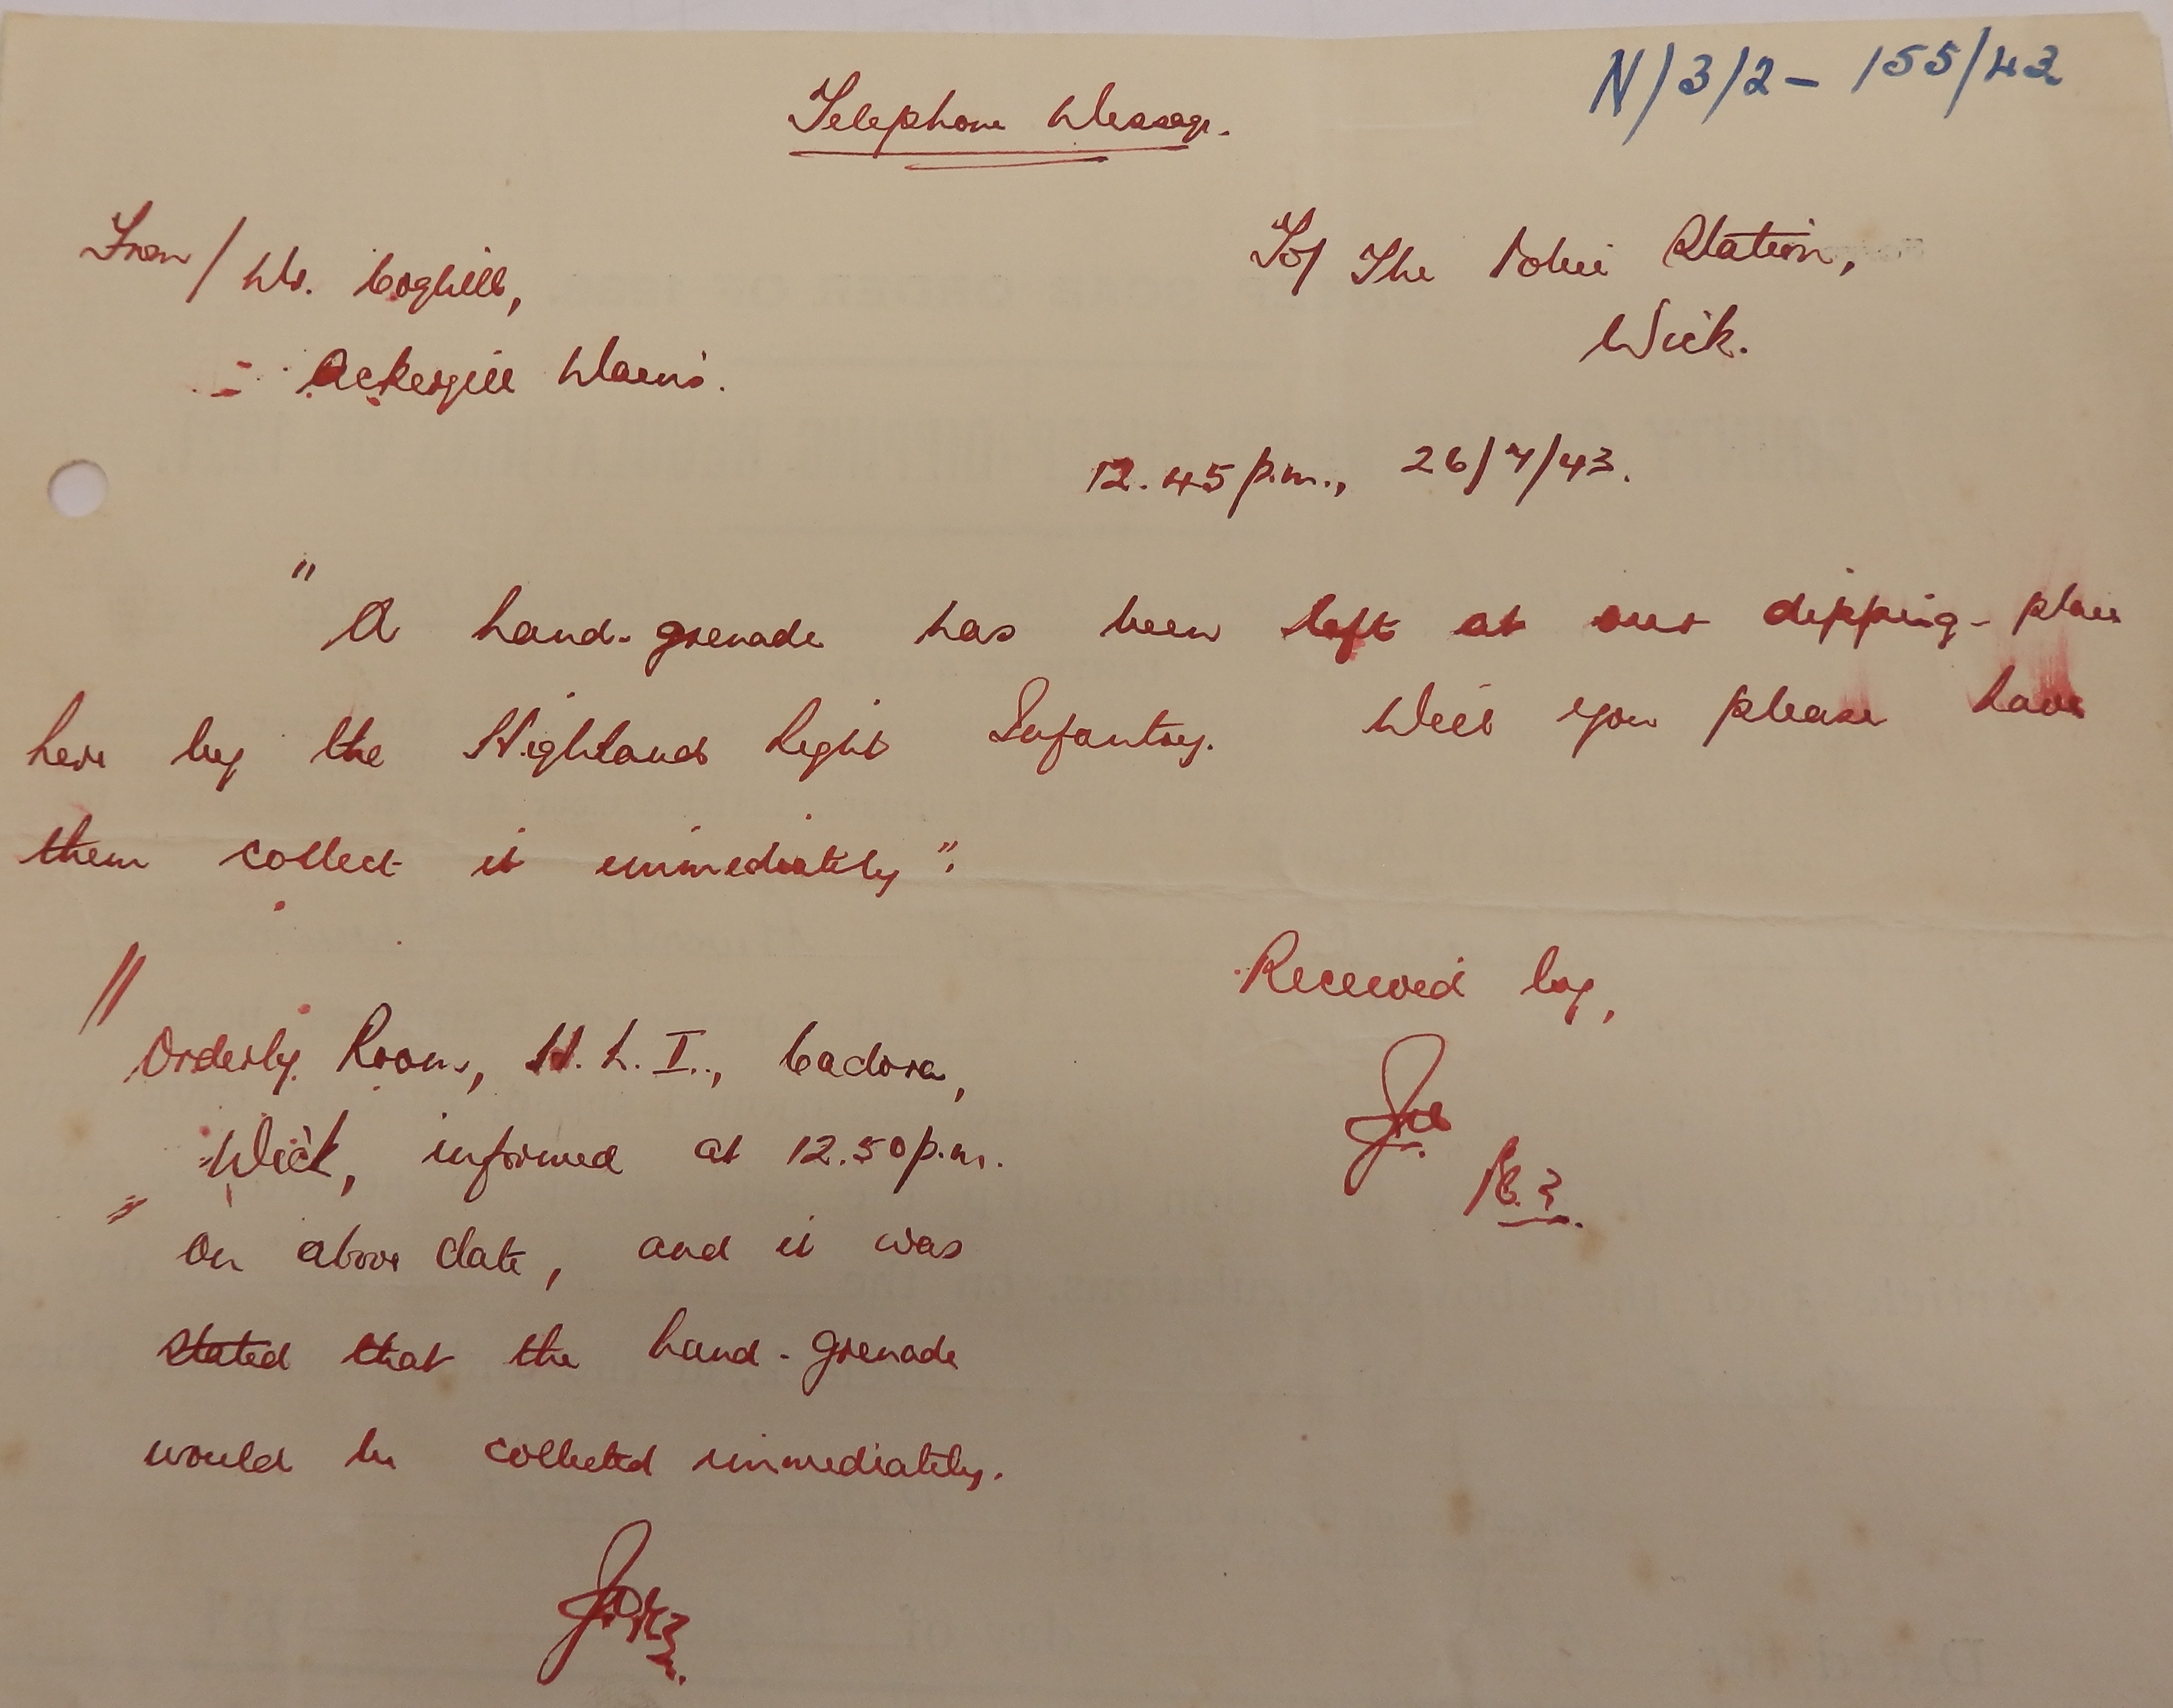 N/3/2 - 155/43
Telephone Message.
From/ Mr. Coghill,
Ackergill Mains.
To/ The Police Station,
Wick.
12.45 p.m., 26/7/43.
" A hand-grenade has been left at our dipping-place
here by the Highland Light Infantry. Will you please have
them collect it immediately".
Received by,
P.C. 3.
// Orderly Room, H.L.I., Cadora,
Wick, informed at 12.50 p.m.
on above date, and it was
stated that the hand-grenade
would be collected immediately.